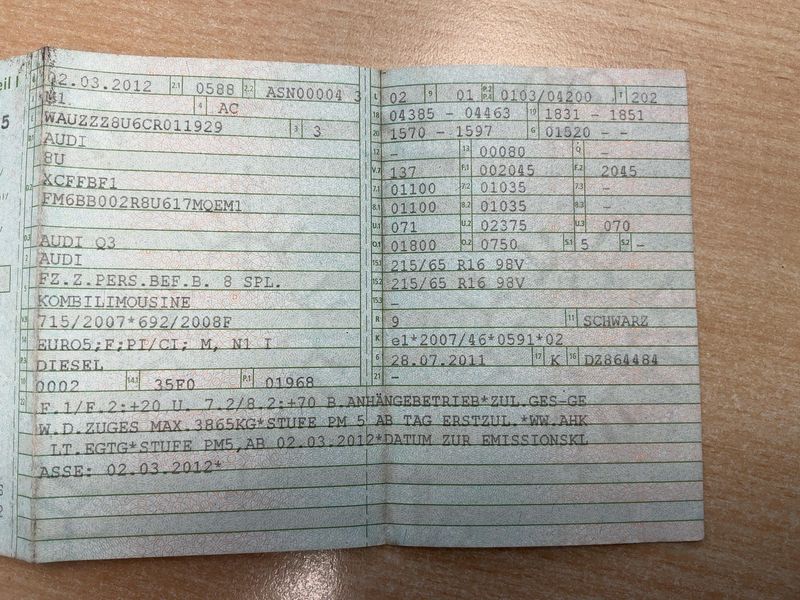 eil I
5
B 02.03.2012 2.1 0588 2.2 ASN00004 3
J M1 4 AC
E WAUZZZ8U6CR011929 3 3
D.1 AUDI
8U
D.2 XCFFBF1
FM6BB002R8U617MQEM1
D.3 AUDI Q3
2 AUDI
5 FZ.Z.PERS.BEF.B. 8 SPL.
KOMBILIMOUSINE
V.9 715/2007*692/2008F
14 EURO5;F;PI/CI; M, N1 I
P.3 DIESEL
10 0002 14.1 35F0 P.1 01968
L 02 9 01 P.2 P.4 0103/04200 T 202
18 04385 - 04463 19 1831 - 1851
20 1570 - 1597 G 01520 - -
12 - 13 00080 Q -
V.7 137 F.1 002045 F.2 2045
7.1 01100 7.2 01035 7.3 -
8.1 01100 8.2 01035 8.3 -
U.1 071 U.2 02375 U.3 070
O.1 01800 O.2 0750 S.1 5 S.2 -
15.1 215/65 R16 98V
15.2 215/65 R16 98V
15.3 -
R 9 11 SCHWARZ
K e1*2007/46*0591*02
6 28.07.2011 17 K 16 DZ864484
21 -
22 F.1/F.2:+20 U. 7.2/8.2:+70 B.ANHÄNGEBETRIEB*ZUL.GES-GE
W.D.ZUGES MAX.3865KG*STUFE PM 5 AB TAG ERSTZUL.*WW.AHK
LT.EGTG*STUFE PM5,AB 02.03.2012*DATUM ZUR EMISSIONSKL
ASSE: 02.03.2012*